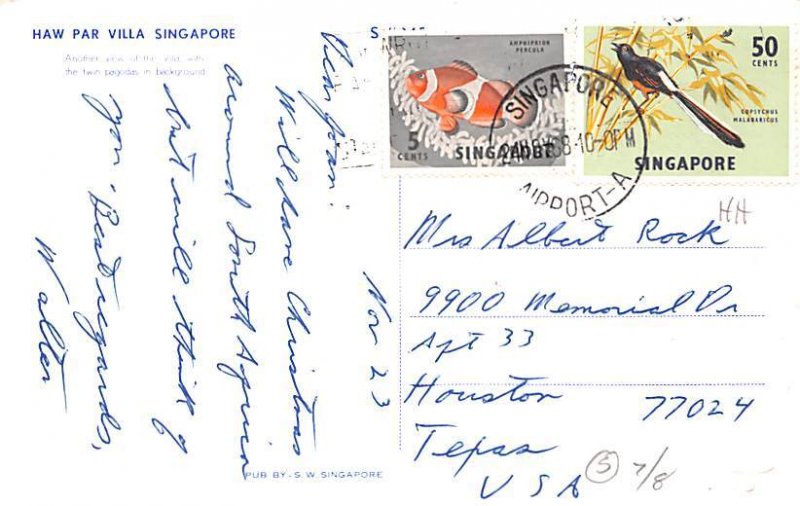 HAW PAR VILLA SINGAPORE
Another view of the villa with
the twin pagodas in background
AMPHIPRION
PERCULA
5
CENTS
SINGAPORE
50
CENTS
COPSYCHUS
MALABARICUS
SINGAPORE
SINGAPORE
68 10-
AIRPORT-A
HH
Nov 23
Dear Joan:
Will have Christmas
around South Africa
but will think of
you. Best regards,
Walter
Mrs Albert Rock
9900 Memorial Dr
Apt 33
Houston
77024
Texas
USA
5 7/8
PUB BY-S.W. SINGAPORE